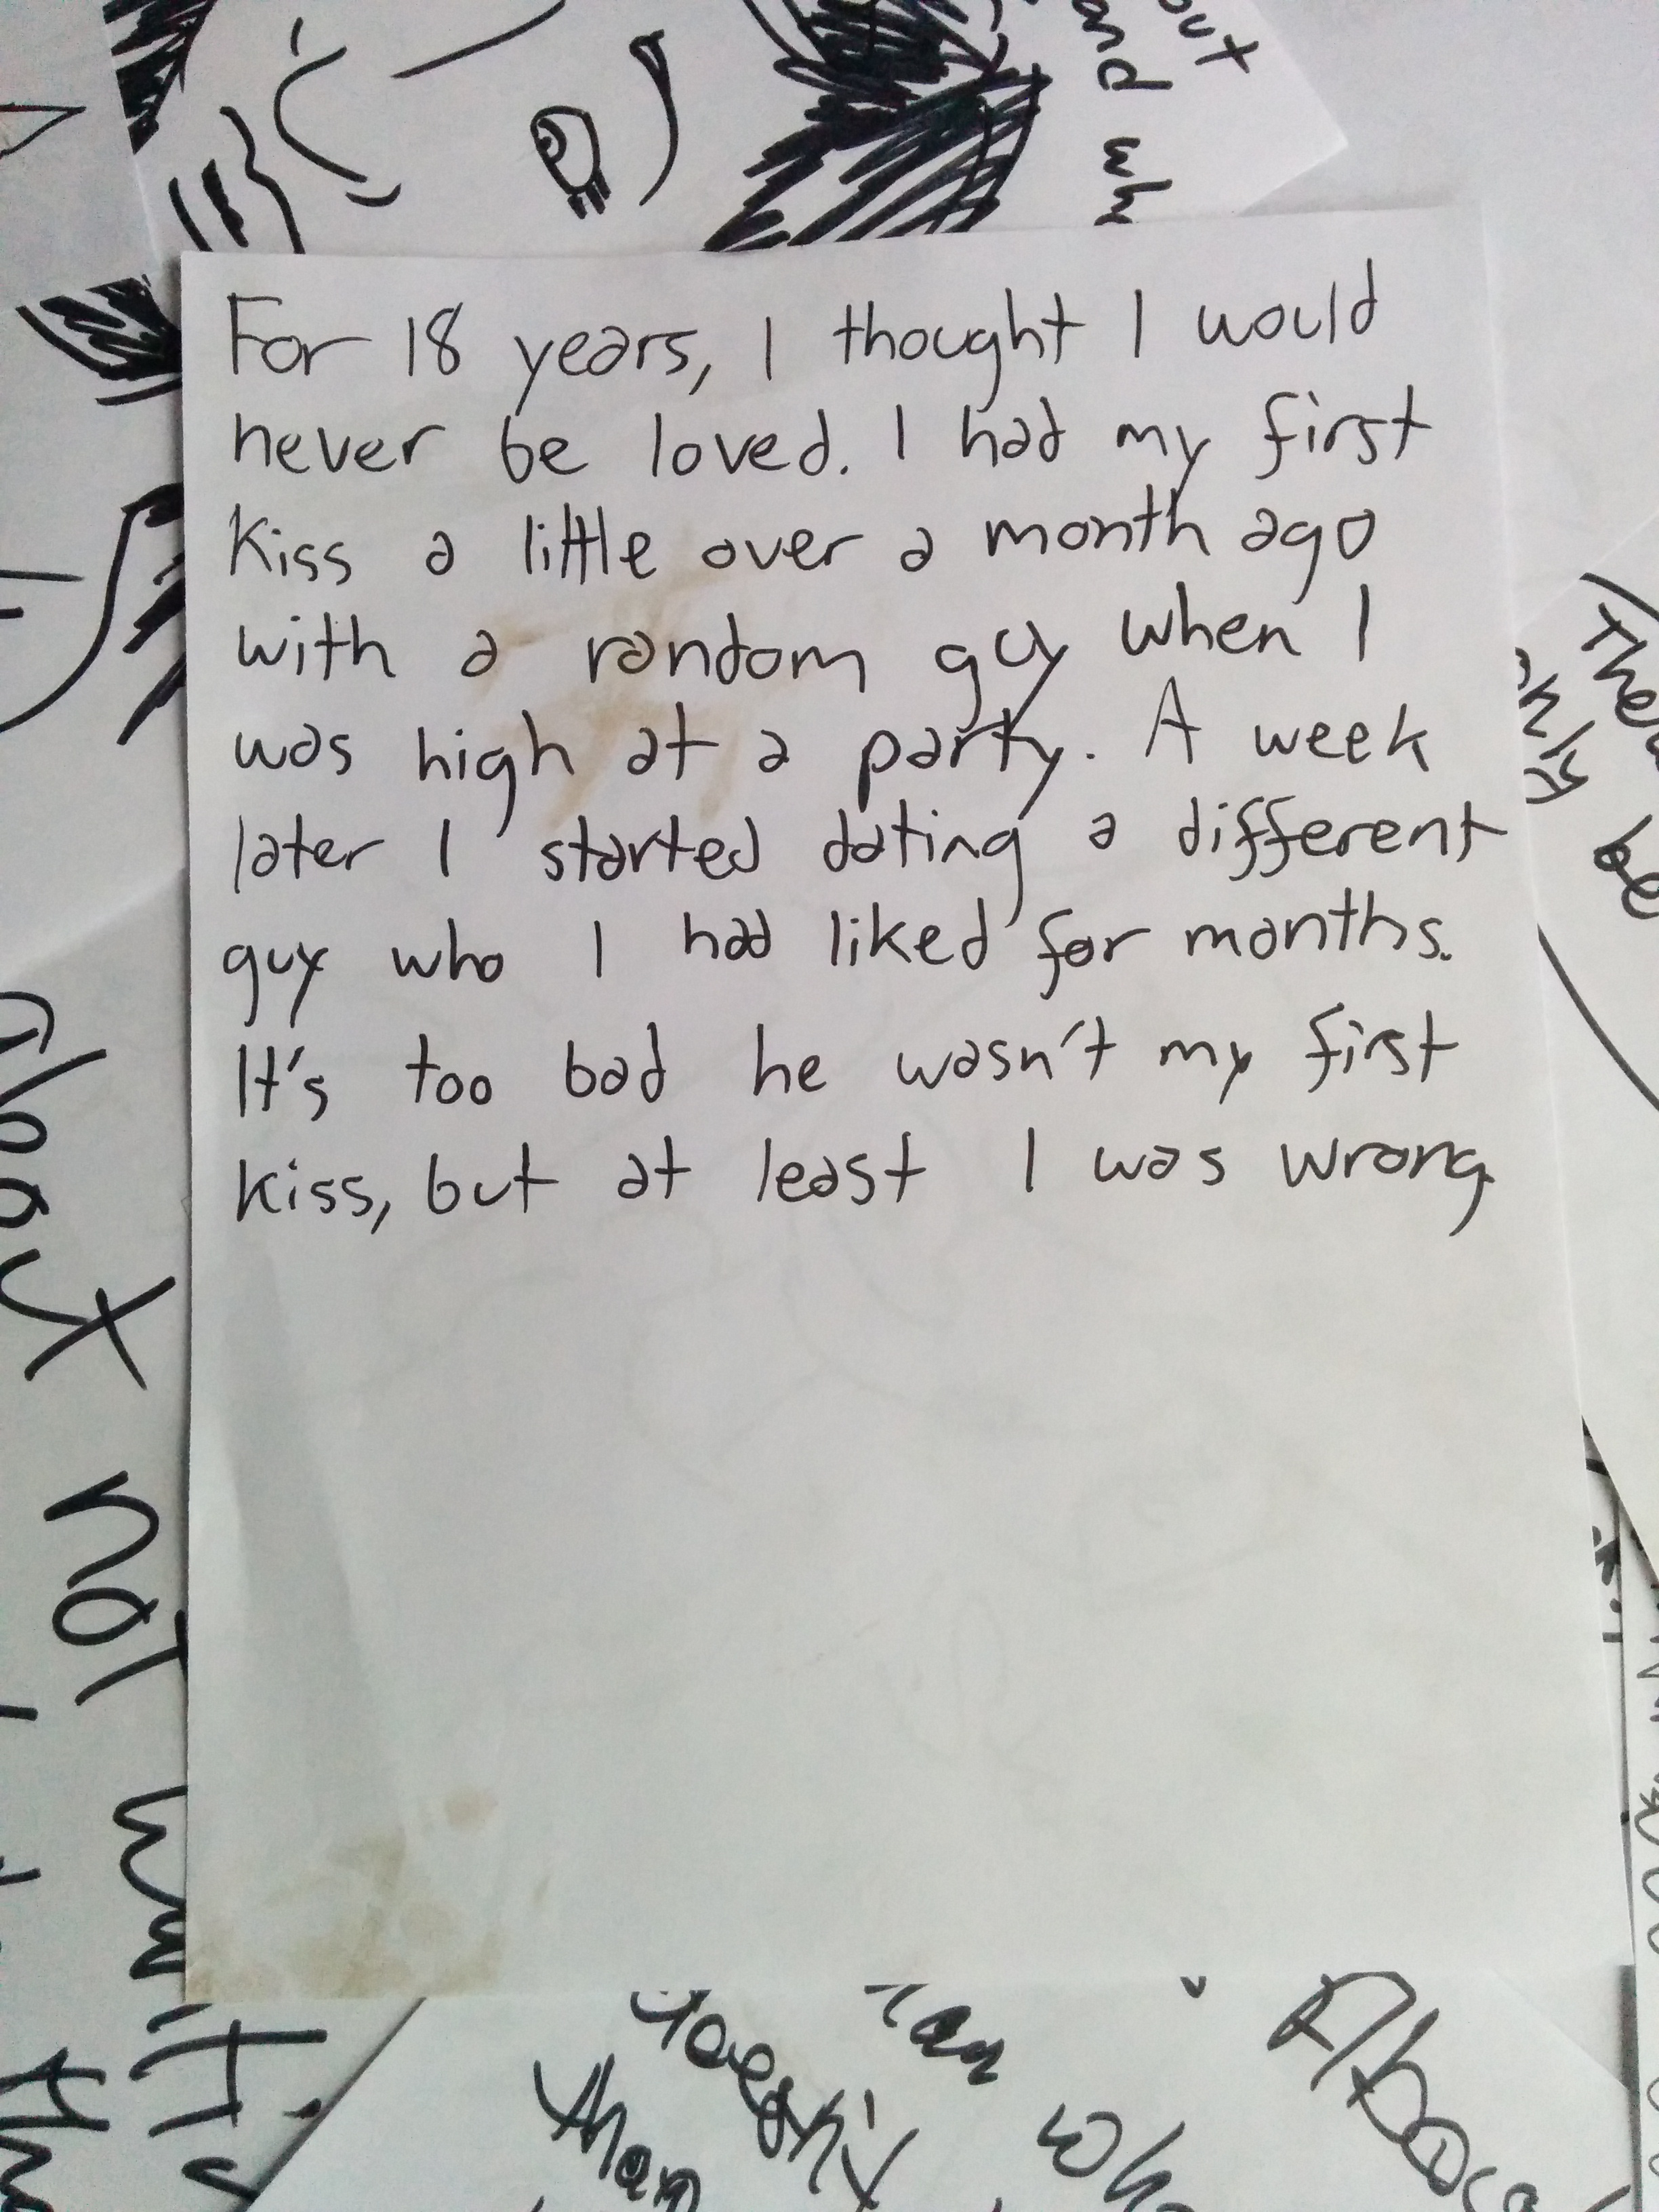 For 18 years, I thought I would
never be loved. I had my first
kiss a little over a month ago
with a random guy when I
was high at a party. A week
later I started dating a different
guy who I had liked for months.
It's too bad he wasn't my first
kiss, but at least I was wrong
out
and
be
okay not
than